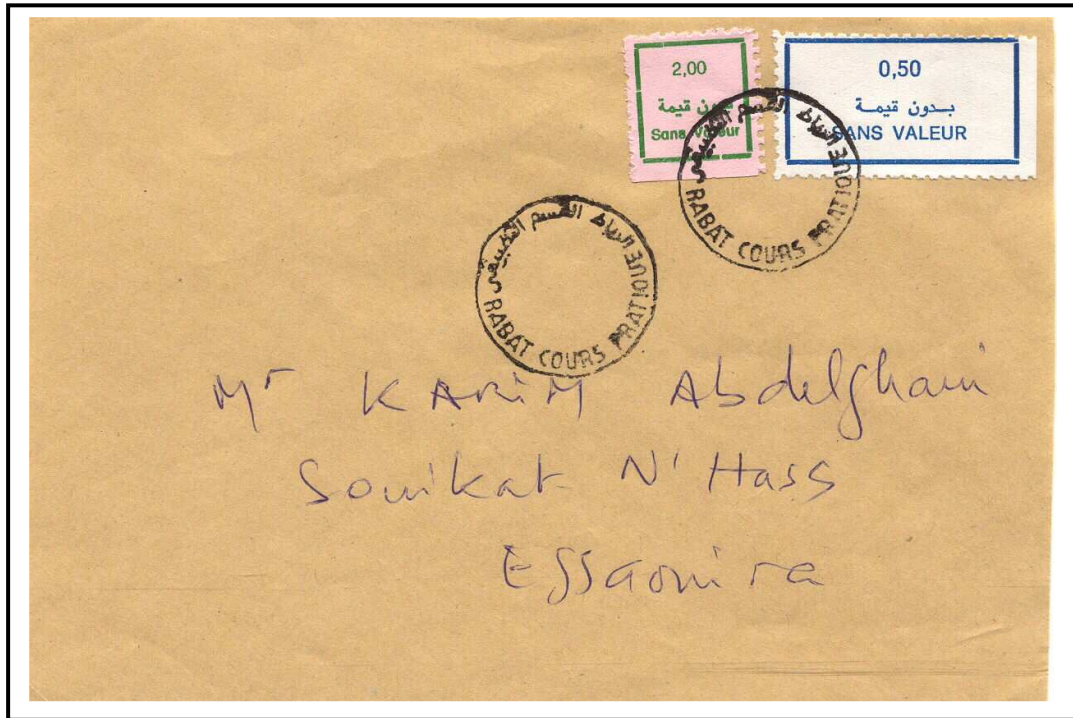 2,00
بدون قيمة
Sans Valeur
0,50
بدون قيمة
SANS VALEUR
الرباط القسم التطبيقي
RABAT COURS PRATIQUE
الرباط القسم التطبيقي
RABAT COURS PRATIQUE
Mr KARIM Abdelghani
Souikat N' Hass
Essaouira